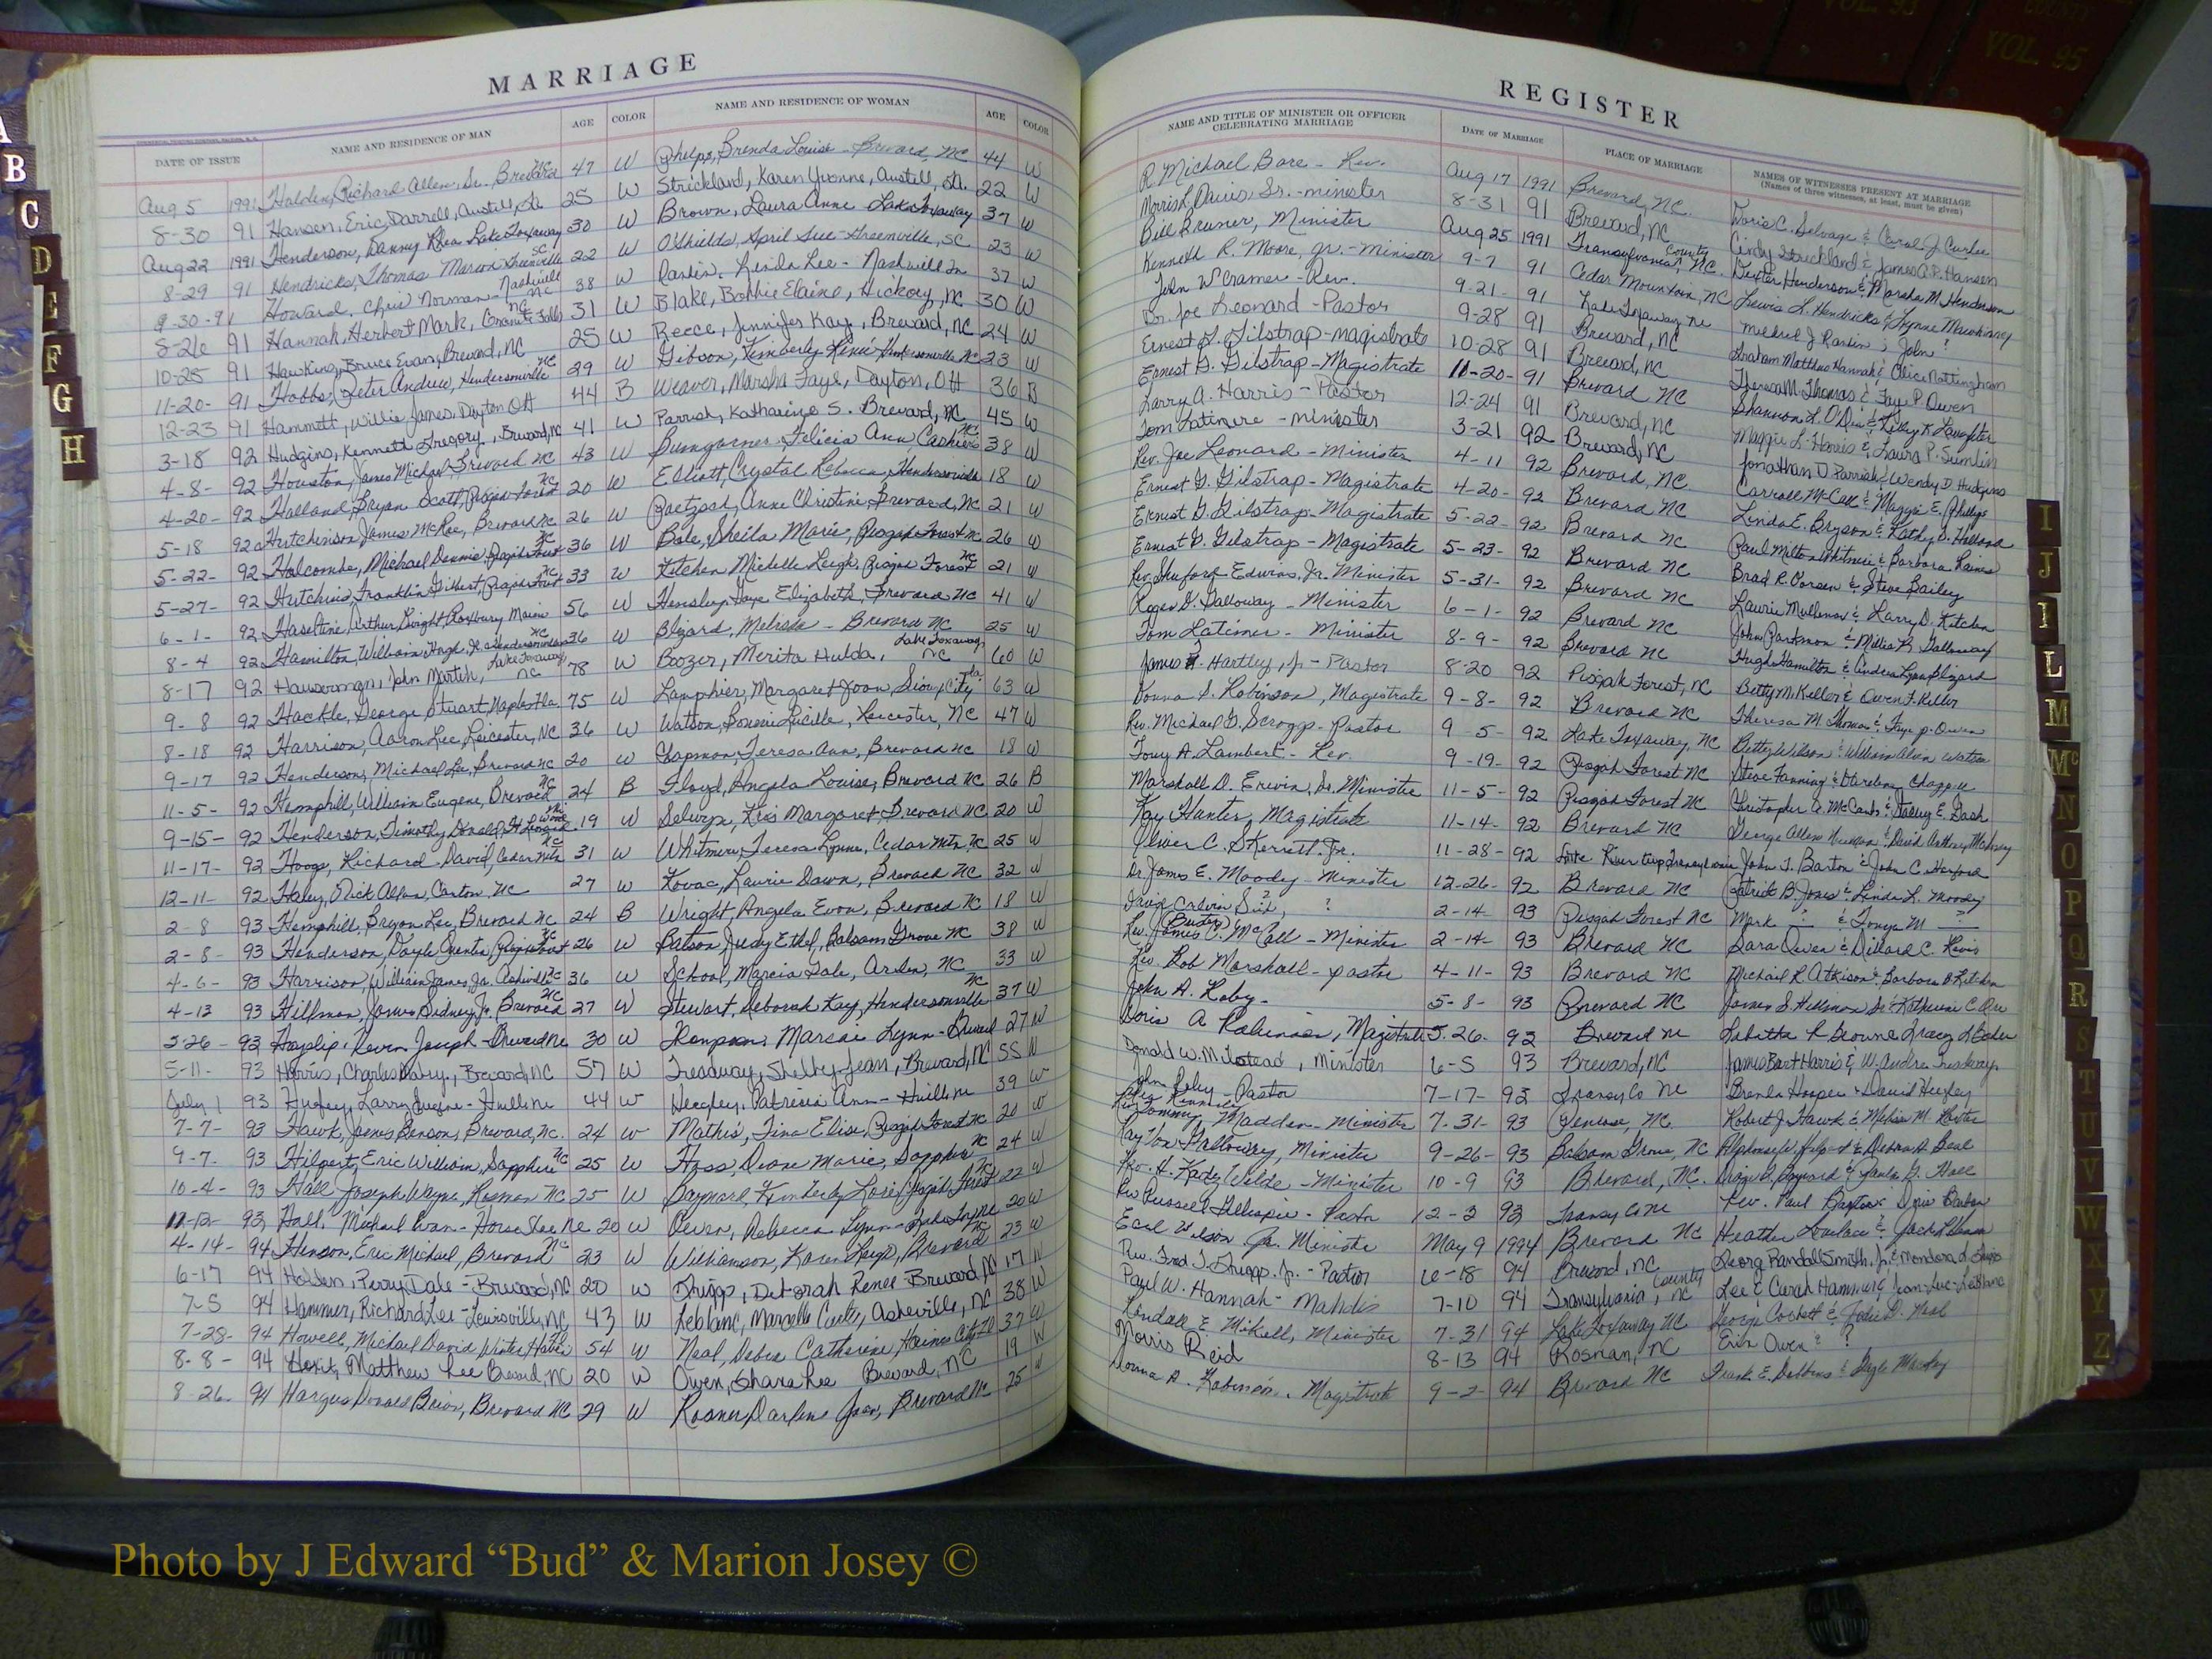 COUNTY
VOL. 95
MARRIAGE
DATE OF ISSUE NAME AND RESIDENCE OF MAN AGE COLOR NAME AND RESIDENCE OF WOMAN AGE COLOR
Aug 5 1991 Holden, Richard Allen, Sr. Brevard NC 47 W Phelps, Brenda Louise - Brevard, NC 44 W
8-30 91 Hansen, Eric Darrell, Austell, Ga 25 W Strickland, Karen Yvonne, Austell, Ga. 22 W
Aug 22 1991 Henderson, Danny Rhea Lake Toxaway 30 W Brown, Laura Anne Lake Toxaway 37 W
8-29 91 Hendricks, Thomas Marion Greenville SC 22 W O'Shields, April Sue - Greenville, SC 23 W
9-30-91 Howard, Chris Norman - Nashville 38 W Rankin, Linda Lee - Nashville Tn 37 W
8-26 91 Hannah, Herbert Mark, Granite Falls NC 31 W Blake, Bobbie Elaine, Hickory, NC 30 W
10-25 91 Hawkins, Bruce Evan, Brevard, NC 25 W Reece, Jennifer Kay, Brevard, NC 24 W
11-20- 91 Hobbs, Peter Andrew, Hendersonville NC 29 W Gibson, Kimberly Hendersonville NC 23 W
12-23 91 Hammett, Willie James, Dayton OH 44 B Weaver, Marsha Faye, Dayton, OH 36 B
3-18 92 Hudgins, Kenneth Gregory, Brevard, NC 41 W Parrish, Katharine S. Brevard, NC 45 W
4-8- 92 Houston, James Michael, Brevard NC 43 W Bumgarner, Felicia Ann, Cashiers NC 38 W
4-20- 92 Holland, Bryan Scott, Pisgah Forest NC 20 W Elliott, Crystal Rebecca, Hendersonville 18 W
5-18 92 Hutchinson, James McKee, Brevard NC 26 W Paetzsch, Anne Christine, Brevard, NC 21 W
5-22- 92 Holcombe, Michael Dennis, Pisgah Forest NC 36 W Bole, Sheila Marie, Pisgah Forest NC 26 W
5-27- 92 Hutchins, Franklin Gilbert, Pisgah Forest NC 33 W Kitchen Michelle Leigh, Pisgah Forest NC 21 W
6-1- 92 Haseltine, Arthur Dwight, Roxbury Maine 56 W Hensley, Faye Elizabeth, Brevard NC 41 W
8-4 92 Hamilton, William Hugh, Jr Hendersonville NC 36 W Blizard, Melinda - Brevard NC 25 W
8-17 92 Hauserman, John Martin, Lake Toxaway, NC 78 W Boozer, Merita Hulda, Lake Toxaway, NC 60 W
9-8 92 Hackle, George Stuart, Naples Fla. 75 W Lanphier, Margaret Joan, Sioux City Ia. 63 W
8-18 92 Harrison, Aaron Lee, Leicester, NC 36 W Watson, Bonnie Lucille, Leicester, NC 47 W
9-17 92 Henderson, Michael Lee, Brevard NC 20 W Chapman, Teresa Ann, Brevard NC 18 W
11-5- 92 Hemphill, William Eugene, Brevard NC 24 B Floyd, Angela Louise, Brevard NC 26 B
9-15- 92 Henderson, Timothy Donald, Ft Leonard Wood 19 W Kris Margaret, Brevard NC 20 W
11-17- 92 Hooge, Richard David, Cedar Mtn NC 31 W Whitmire, Teresa Lynne, Cedar Mtn NC 25 W
12-11- 92 Haley, Rick Allen, Canton NC 27 W Kovac, Laurie Dawn, Brevard NC 32 W
2-8 93 Hemphill, Bryan Lee, Brevard NC 24 B Wright, Angela Evon, Brevard NC 18 W
2-8- 93 Henderson, Doyle Quentin, Pisgah Forest NC 26 W Batson, Judy Ethel, Balsam Grove NC 38 W
4-6- 93 Harrison, William James, Jr. Asheville NC 36 W School, Marcia Gale, Arden, NC 33 W
4-13 93 Hillman, James Sidney, Jr. Brevard NC 27 W Stewart, Deborah Kay, Hendersonville NC 37 W
5-26- 93 Hayslip, Kevin Joseph - Brevard NC 30 W Marcai Lynn - Brevard 27 W
5-11- 93 Harris, Charles, Brevard, NC 57 W Treadway, Shelby Jean, Brevard, NC 55 W
July 1 93 Larry Eugene - 44 W Patricia Ann - 39 W
7-7- 93 Hawk, James Benson, Brevard, NC. 24 W Mathis, Tina Elise, Pisgah Forest NC 20 W
9-7 93 Hilpert, Eric William, Sapphire NC 25 W Hass, Diane Marie, Sapphire NC 24 W
10-4- 93 Hall, Joseph Wayne, Rosman NC 25 W Baynard, Kimberly Pisgah Forest NC 22 W
11-12- 93 Hall, Michael Evan - Horse Shoe NC 20 W Owen, Rebecca Lynn - Lake Tox NC 20 W
4-14- 94 Henson, Eric Michael, Brevard NC 23 W Williamson, Karen Leigh, Brevard NC 23 W
6-17 94 Holden, Perry Dale - Brevard, NC 20 W Shupp, Deborah Renee - Brevard NC 17 W
7-5 94 Hammer, Richard Lee - Lewisville, NC 43 W Leblanc, Marcelle Asheville, NC 38 W
7-28- 94 Howell, Michael David Winter Haven 54 W Neal, Debra Catherine, Haines City Fl 37 W
8-8- 94 Matthew Lee Brevard, NC 20 W Owen, Shara Lee Brevard, NC 19 W
8-26. 94 Hargus Donald Brian, Brevard NC 29 W Rosner Darlene Joan, Brevard NC 25 W
REGISTER
NAME AND TITLE OF MINISTER OR OFFICER CELEBRATING MARRIAGE DATE OF MARRIAGE PLACE OF MARRIAGE NAMES OF WITNESSES PRESENT AT MARRIAGE
(Names of three witnesses, at least, must be given)
R Michael Bare - Rev. Aug 17 1991 Brevard, NC. Doris C. Selvage & Carol J. Curlee
Morris L Davis Sr. - minister 8-31 91 Brevard, NC Cindy Strickland & James A.P. Hansen
Bill Bruner, Minister Aug 25 1991 Transylvania County, NC. Dexter Henderson & Marsha M Henderson
Kenneth R. Moore, Jr. - minister 9-7 91 Cedar Mountain, NC Lewis L. Hendricks & Lynne
John W Cramer - Rev. 9-21- 91 Lake Toxaway NC Michael J Rankin ; John ?
Dr. Joe Leonard - Pastor 9-28 91 Brevard, NC Graham Matthew Hannah & Alice Nottingham
Ernest G. Gilstrap - magistrate 10-28 91 Brevard, NC Theresa M. Thomas & Faye P. Owen
Ernest G. Gilstrap - Magistrate 11-20- 91 Brevard NC Shannon L. O'Dea & Kelley K. Laughter
Larry A. Harris - Pastor 12-24 91 Brevard, NC Maggie L. Harris & Laura P. Sumlin
Tom Latimere - minister 3-21 92 Brevard, NC. Jonathan D Parrish & Wendy D. Hudgins
Rev. Joe Leonard - Minister 4-11 92 Brevard, NC. Carroll McCall & Maggie E. Phillips
Ernest G. Gilstrap - Magistrate 4-20- 92 Brevard NC Linda E. Bryson & Kathy D. Holland
Ernest G. Gilstrap - Magistrate 5-22- 92 Brevard NC Paul Milton Whitmire & Barbara Raines
Ernest G. Gilstrap - Magistrate 5-23- 92 Brevard NC Brad R. Corsen & Steve Bailey
Rev. Shuford Edwins, Jr. Minister 5-31- 92 Brevard NC Laurie Mullenax & Larry D. Kitchen
Roger D. Galloway - Minister 6-1- 92 Brevard NC John Parkman & Millie R. Galloway
Tom Latimer - Minister 8-9- 92 Brevard NC Hugh Hamilton & Andrea Lynn Blizard
James H. Hartley, Jr - Pastor 8-20 92 Pisgah Forest, NC Betty M. Keller & Owen F. Keller
Donna S. Robinson, Magistrate 9-8- 92 Brevard NC Theresa M Thomas & Faye P. Owen
Rev. Michael G. Scroggs - Pastor 9-5- 92 Lake Toxaway, NC Betty Wilson & William Alvin Watson
Tony A. Lambert - Rev. 9-19- 92 Pisgah Forest NC Steve Fanning & Chappell
Marshall D. Ervin, Sr. Minister 11-5- 92 Pisgah Forest NC Christopher A. McCants & E. Gash
Kay Hunter, Magistrate 11-14- 92 Brevard NC George Allen Newman & David Anthony
Oliver C. Skerrett, Jr. 11-28- 92 John T. Barton & John C. Harford
Dr. James E. Moody - Minister 12-26- 92 Brevard NC Patrick B. Jones & Linda L. Moody
? 2-14- 93 Pisgah Forest NC Mark ? & Tonya M ?
Rev. James (Buster) McCall - Minister 2-14- 93 Brevard NC Sara Owen & Dillard C.
Rev. Rob Marshall - Pastor 4-11- 93 Brevard NC Michael R Atkison & Barbara
John A. Roby - 5-8- 93 Brevard NC James S. Hillman Sr & Katherine C. Orr
A Robinson, Magistrate 5-26. 93 Brevard NC Tabitha R Browne
Donald W. Milstead, Minister 6-5 93 Brevard, NC James Bart Harris & W. Andrea
John Roby - Pastor 7-17- 93 Transy Co NC Brenda Hooper
Rev. Tommy Madden - Minister 7-31- 93 Penrose, NC Robert J. Hawk & Melissa M.
Ray Von Galloway, Minister 9-26- 93 Balsam Grove, NC
Rev. H. Katy Wilde - Minister 10-9 93 Brevard, NC. Craig A. Baynard & Paula G. Hall
Rev Russell Gillespie - Pastor 12-3 93 Transy Co NC Rev. Paul
Earl Wilson Jr. Minister May 9 1994 Brevard NC Heather
Rev. Fred J. Shupp. Jr. - Pastor 6-18 94 Brevard, NC Georg Randall Smith, Jr. &
Paul W. Hannah - 7-10 94 Transylvania County, NC Lee & Carah Hammer & Jean-Luc LeBlanc
Kendall E. Mikell, Minister 7-31 94 Lake Toxaway NC George Corbett & Jodie D. Neal
Morris Reid 8-13 94 Rosman, NC Erik Owen & ?
Donna A. Robinson, Magistrate 9-2- 94 Brevard NC Frank E. & Gayle
A
B
C
D
E
F
G
H
I
J
L
M
Mc
N
O
P
Q
R
S
T
U
V
W
X
Y
Z
Photo by J Edward “Bud” & Marion Josey ©